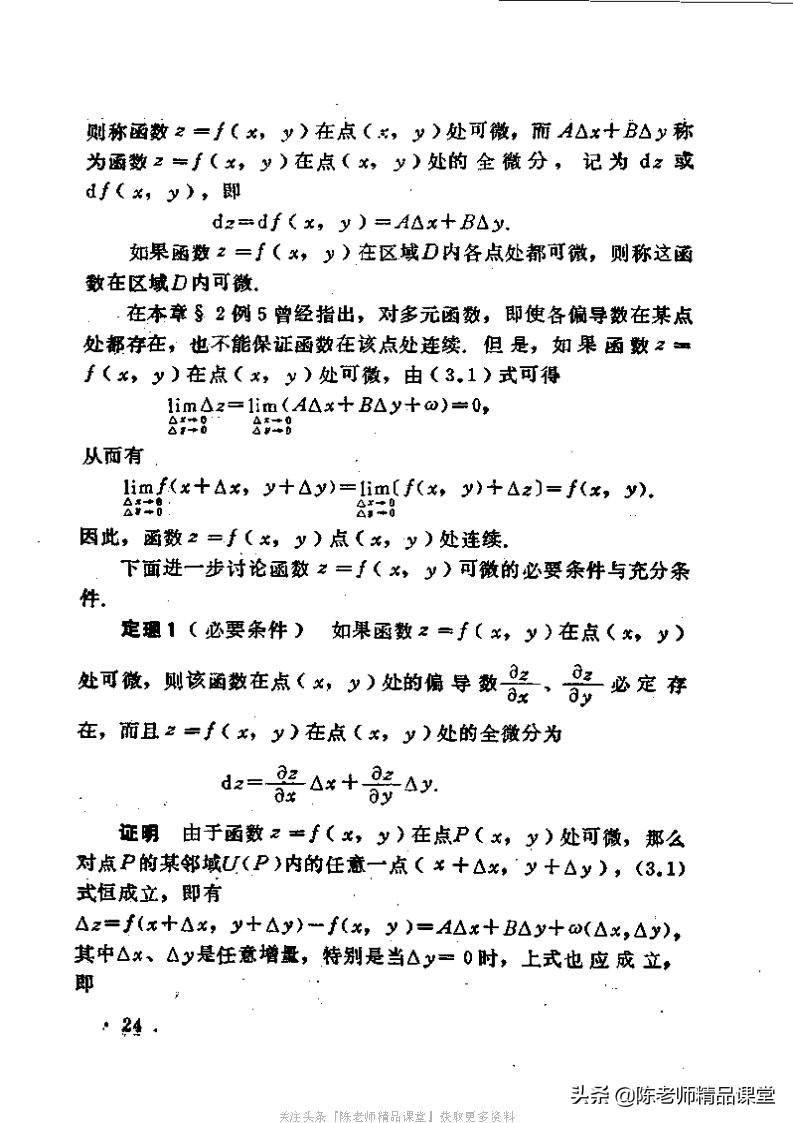 则称函数 z = f( x, y )在点( x, y )处可微, 而 AΔx+BΔy 称
为函数 z = f( x, y )在点( x, y )处的 全 微 分 , 记 为 dz 或
df( x, y ), 即
dz=df( x, y )=AΔx+BΔy.
如果函数 z = f( x, y )在区域D内各点处都可微, 则称这函
数在区域D内可微.
在本章 § 2 例 5 曾经指出, 对多元函数, 即使各偏导数在某点
处都存在, 也不能保证函数在该点处连续. 但 是, 如 果 函 数 z =
f( x, y )在点( x, y )处可微, 由(3.1)式可得
limΔz=lim(AΔx+BΔy+ω)=0,
Δx→0 Δx→0
Δy→0 Δy→0
从而有
limf(x+Δx, y+Δy)=lim[f(x, y)+Δz]=f(x, y).
Δx→0 Δx→0
Δy→0 Δy→0
因此, 函数 z = f( x, y )点(x, y )处连续.
下面进一步讨论函数 z = f( x, y )可微的必要条件与充分条
件.
定理1 ( 必要条件 ) 如果函数 z = f( x, y )在点( x, y )
处可微, 则该函数在点( x, y )处的偏 导 数 ∂z/∂x 、 ∂z/∂y 必 定 存
在, 而且 z = f( x, y )在点( x, y )处的全微分为
dz= ∂z/∂x Δx + ∂z/∂y Δy.
证明 由于函数 z = f( x, y )在点P( x, y )处可微, 那么
对点P的某邻域U(P)内的任意一点( x +Δx, y +Δy ), (3.1)
式恒成立, 即有
Δz=f(x+Δx, y+Δy)-f(x, y )=AΔx+BΔy+ω(Δx,Δy),
其中Δx、Δy是任意增量, 特别是当Δy= 0 时, 上式也 应 成 立,
即
· 24 ·
头条 @陈老师精品课堂
关注头条「陈老师精品课堂」获取更多资料